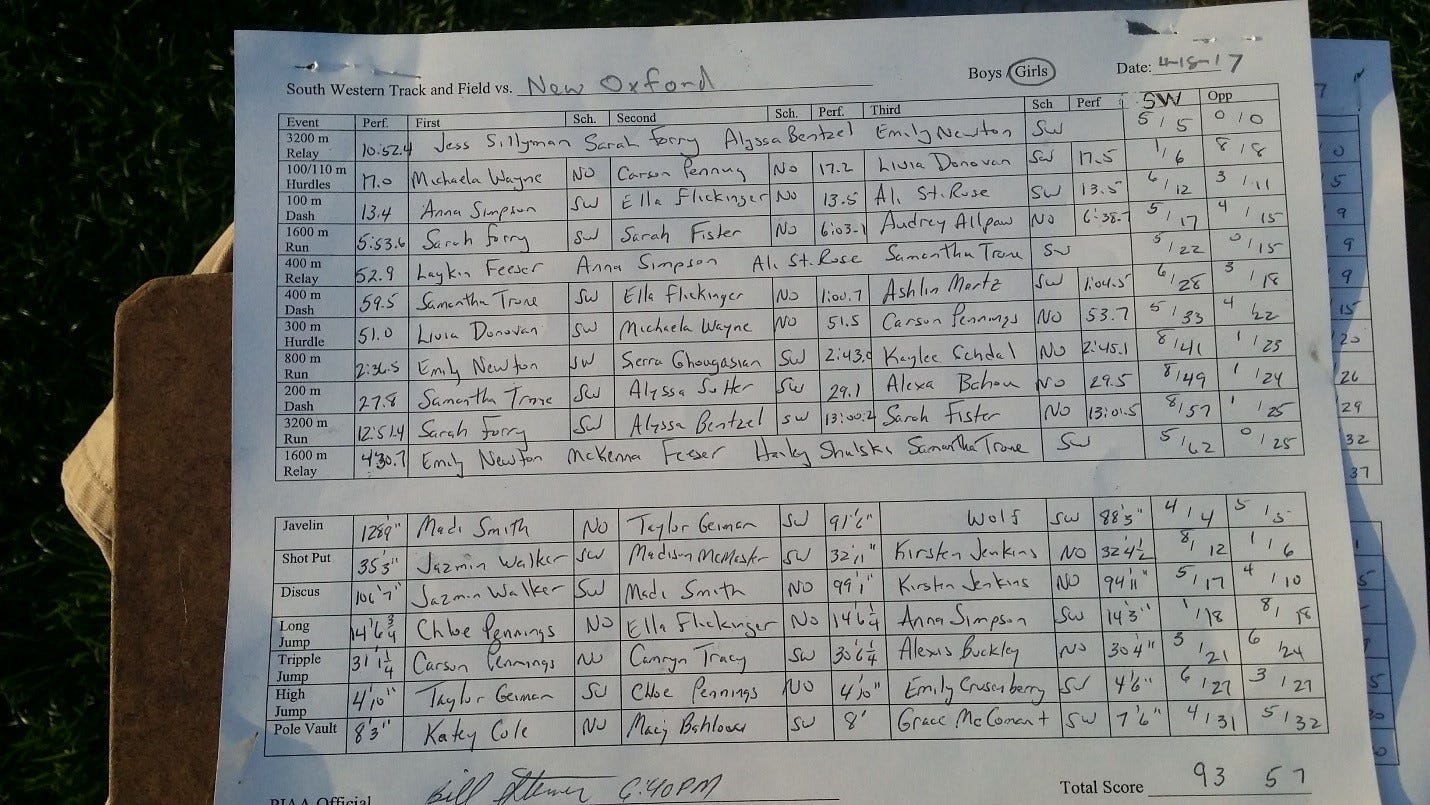 South Western Track and Field vs. New Oxford Boys / Girls Date: 4-18-17
Event Perf. First Sch. Second Sch. Perf. Third Sch Perf SW Opp
3200 m Relay 10:52.4 Jess Sillyman Sarah Forry Alyssa Bentzel Emily Newton SW 5/5 0/0
100/110 m Hurdles 17.0 Michaela Wayne NO Carson Penning NO 17.2 Livia Donovan SW 17.5 1/6 8/8
100 m Dash 13.4 Anna Simpson SW Ella Flickinger NO 13.5 Al. St. Rose SW 13.5 6/12 3/11
1600 m Run 5:53.6 Sarah Forry SW Sarah Fister NO 6:03.1 Audrey Allpaw NO 6:38.7 5/17 4/15
400 m Relay 52.9 Laykin Feeser Anna Simpson Al. St. Rose Samantha Trone SW 5/22 0/15
400 m Dash 59.5 Samantha Trone SW Ella Flickinger NO 1:00.7 Ashlin Martz SW 1:04.5 6/28 3/18
300 m Hurdle 51.0 Livia Donovan SW Michaela Wayne NO 51.5 Carson Pennings NO 53.7 5/33 4/22
800 m Run 2:36.5 Emily Newton SW Serra Ghougasian SW 2:43.9 Kaylee Sehdal NO 2:45.1 8/41 1/23
200 m Dash 27.8 Samantha Trone SW Alyssa Sutter SW 29.1 Alexa NO 29.5 8/49 1/24
3200 m Run 12:51.4 Sarah Forry SW Alyssa Bentzel SW 13:00.2 Sarah Fister NO 13:01.5 8/57 1/25
1600 m Relay 4:30.7 Emily Newton McKenna Feeser Harley Shulski Samantha Trone SW 5/62 0/25
Javelin 128'9" Madi Smith NO Taylor Geiman SW 91'6" Wolf SW 88'5" 4/4 5/5
Shot Put 35'3" Jazmin Walker SW Madison McMaster SW 32'11" Kirsten Jenkins NO 32'4½ 8/12 1/6
Discus 106'7" Jazmin Walker SW Madi Smith NO 99'1" Kirstin Jenkins NO 94'11" 5/17 4/10
Long Jump 14'6¾ Chloe Pennings NO Ella Flickinger NO 14'6¼ Anna Simpson SW 14'3" 1/18 8/18
Tripple Jump 31'1¼ Carson Pennings NO Camryn Tracy SW 30'6¼ Alexis Buckley NO 30'4" 3/21 6/24
High Jump 4'10" Taylor Geiman SW Chloe Pennings NO 4'10" Emily Crusenberry SW 4'6" 6/27 3/27
Pole Vault 8'3" Katey Cole NO Macy SW 8' Grace McComant SW 7'6" 4/31 5/32
PIAA Official Bill 6:40PM Total Score 93 57